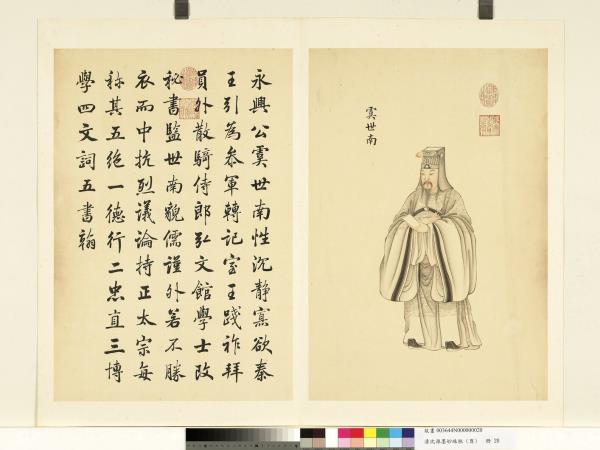 永興公虞世南性沉靜寡欲秦
王引為參軍轉記室王踐祚拜
員外散騎侍郎弘文館學士改
秘書監世南貌儒謹外若不勝
衣而中抗烈議論持正太宗每
稱其五絕一德行二忠直三博
學四文詞五書翰
虞世南
故畫 003644N000000020